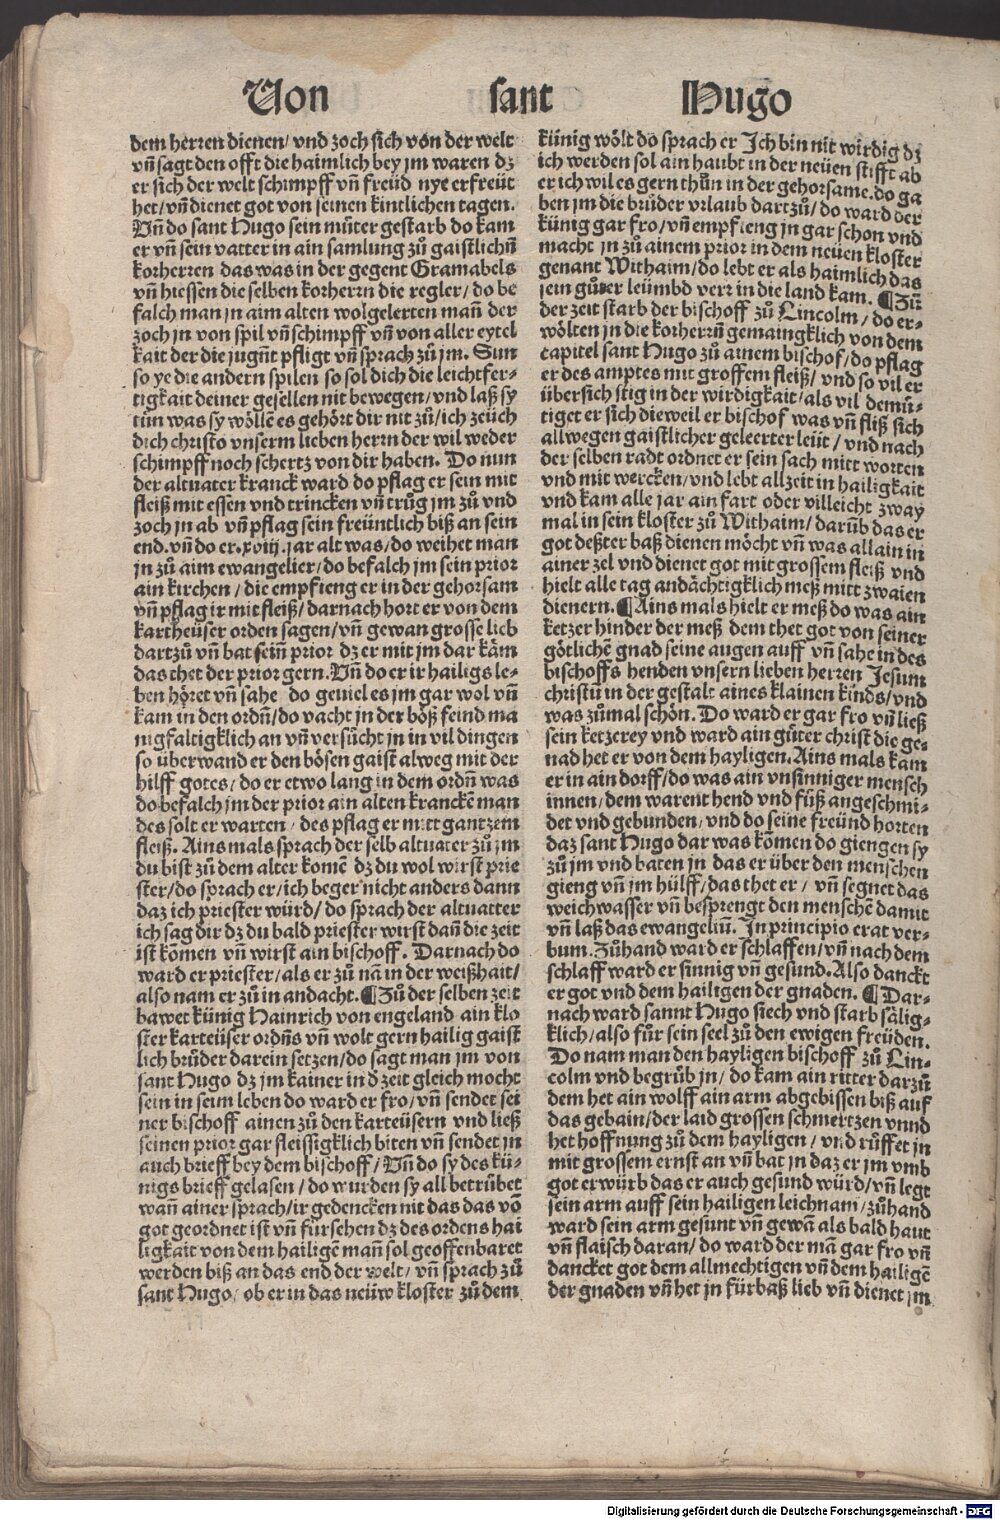 Von sant Hugo
dem herren dienen/ vnd zoch sich von der welt
vñ sagt den offt die haimlich bey jm waren dz
er sich der welt schimpff vñ freüd nye erfreüt
het/ vñ dienet got von seinen kintlichen tagen.
Vñ do sant Hugo sein můter gestarb do kam
er vñ sein vatter in ain samlung zů gaistlichñ
korherren das was in der gegent Gramabels
vñ hiessen die selben korherrn die regler/ do be
falch man jn aim alten wolgelerten mañ der
zoch jn von spil vñ schimpff vñ von aller eytel
kait der die jugñt pfligt vñ sprach zů jm. Sun
so ye die andern spilen so sol dich die leichtfer-
tigkait deiner gesellen nit bewegen/ vnd laß sy
tůn was sy wöllẽ es gehört dir nit zů/ ich zeüch
dich christo vnserm lieben herrn der wil weder
schimpff noch schertz von dir haben. Do nun
der altuater kranck ward do pflag er sein mit
fleiß mit essen vnd trincken vñ trůg jm zů vnd
zoch jn ab vñ pflag sein freüntlich biß an sein
end. vñ do er .xviij. jar alt was/ do weihet man
jn zů aim ewangelier/ do befalch jm sein prior
ain kirchen/ die empfieng er in der gehorsam
vñ pflag ir mit fleiß/ darnach hort er von dem
kartheüser orden sagen/ vñ gewan grosse lieb
dartzů vñ bat sein prior dz er mit jm dar käm
das thet der prior gern. Vñ do er ir hailigs le-
ben höret vñ sahe do geuiel es jm gar wol vñ
kam in den ordñ/ do vacht jn der böß feind ma
nigfaltigklich an vñ versůcht jn in vil dingen
so überwand er den bösen gaist alweg mit der
hilff gotes/ do er etwo lang in dem ordñ was
do befalch jm der prior ain alten kranckẽ man
des solt er warten/ des pflag er mitt gantzem
fleiß. Ains mals sprach der selb altuater zů jm
du bist zů dem alter komẽ dz du wol wirst prie
ster/ do sprach er/ ich beger nicht anders dann
daz ich priester würd/ do sprach der altuatter
ich sag dir dz du bald priester wirst dañ die zeit
ist kõmen vñ wirst ain bischoff. Darnach do
ward er priester/ als er zů nã in der weißhait/
also nam er zů in andacht. ¶Zů der selben zeit
bawet künig Hainrich von engeland ain klo
ster karteüser ordñs vñ wolt gern hailig gaist
lich brüder darein setzen/ do sagt man jm von
sant Hugo dz jm kainer in d̄ zeit gleich mocht
sein in seim leben do ward er fro/ vñ sendet sei
ner bischoff ainen zů den karteüsern vnd ließ
seinen prior gar fleissigklich biten vñ sendet jn
auch brieff bey dem bischoff/ Vñ do sy des kü-
nigs brieff gelasen/ do wurden sy all betrübet
wañ ainer sprach/ ir gedencken nit das das võ
got geordnet ist vñ fürsehen dz des ordens hai
ligkait von dem hailigẽ mañ sol geoffenbaret
werden biß an das end der welt/ vñ sprach zů
sant Hugo/ ob er in das neüw kloster zů dem
künig wölt do sprach er Ich bin nit wirdig dz
ich werden sol ain haubt in der neüen stifft ab
er ich wil es gern thůn in der gehorsame. do ga
ben jm die brüder vrlaub dartzů/ do ward der
künig gar fro/ vñ empfieng jn gar schon vnd
macht jn zů ainem prior in dem neüen kloster
genant Withaim/ do lebt er als haimlich das
sein gůter leümbd verr in die land kam. ¶Zů
der zeit starb der bischoff zů Lincolm/ do er-
wölten jn die korherrñ gemaingklich von dem
capitel sant Hugo zů ainem bischof/ do pflag
er des amptes mit grossem fleiß/ vnd so vil er
übersich stig in der wirdigkait/ als vil demü-
tiget er sich dieweil er bischof was vñ fliß sich
allwegen gaistlicher geleerter leüt/ vnd nach
der selben radt ordnet er sein sach mitt worten
vnd mit wercken/ vnd lebt allzeit in hailigkait
vnd kam alle jar ain fart oder villeicht zway
mal in sein kloster zů Withaim/ darůb das er
got deßter baß dienen möcht vñ was allain in
ainer zel vnd dienet got mit grossem fleiß vnd
hielt alle tag andächtigklich meß mitt zwaien
dienern. ¶Ains mals hielt er meß do was ain
ketzer hinder der meß dem thet got von seiner
götlichẽ gnad seine augen auff vñ sahe in des
bischoffs henden vnsern lieben herren Jesum
christũ in der gestalt aines klainen kinds/ vnd
was zůmal schön. Do ward er gar fro vñ ließ
sein ketzerey vnd ward ain gůter christ die ge-
nad het er von dem hayligen. Ains mals kam
er in ain dorff/ do was ain vnsinniger mensch
innen/ dem warent hend vnd fůß angeschmi-
det vnd gebunden/ vnd do seine freünd horten
daz sant Hugo dar was kõmen do giengen sy
zů jm vnd baten jn das er über den menschen
gieng vñ jm hülff/ das thet er/ vñ segnet das
weichwasser vñ besprengt den menschẽ damit
vñ laß das ewangeliũ. In principio erat ver-
bum. Zůhand ward er schlaffen/ vñ nach dem
schlaff ward er sinnig vñ gesund. Also danckt
er got vnd dem hailigen der gnaden. ¶Dar-
nach ward sannt Hugo siech vnd starb sälig-
klich/ also für sein seel zů den ewigen freüden.
Do nam man den hayligen bischoff zů Lin-
colm vnd begrůb jn/ do kam ain ritter darzů
dem het ain wolff ain arm abgebissen biß auf
das gebain/ der laid grossen schmertzen vnnd
het hoffnung zů dem hayligen/ vnd růffet jn
mit grossem ernst an vñ bat jn daz er jm vmb
got erwürb das er auch gesund würd/ vñ legt
sein arm auff sein hailigen leichnam/ zůhand
ward sein arm gesunt vñ gewã als bald haut
vñ flaisch daran/ do ward der mã gar fro vñ
dancket got dem allmechtigen vñ dem hailigẽ
der gnaden vñ het jn fürbaß lieb vñ dienet jm
Digitalisierung gefördert durch die Deutsche Forschungsgemeinschaft - DFG